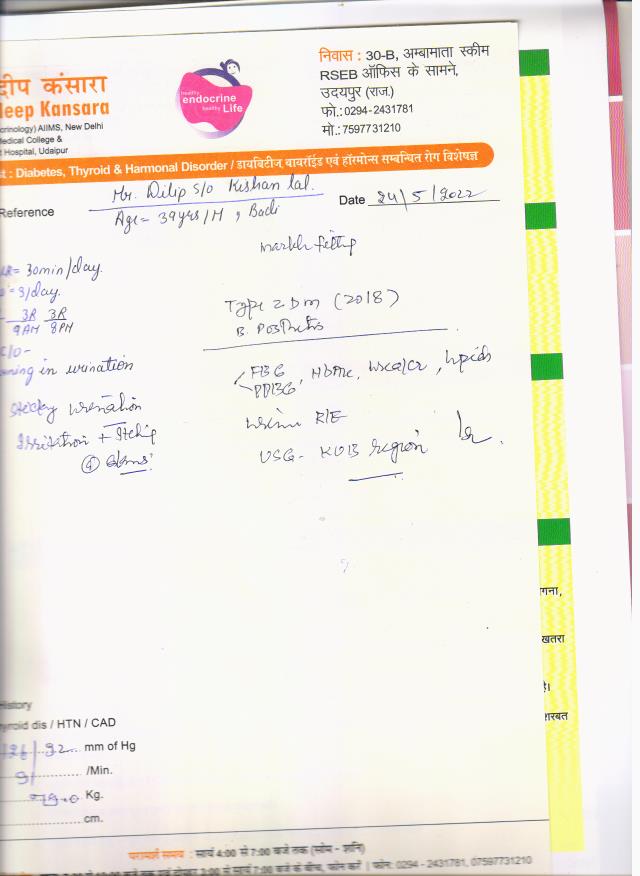 निवास : 30-B, अम्बामाता स्कीम
RSEB ऑफिस के सामने,
उदयपुर (राज.)
फो.:0294-2431781
मो.:7597731210
दीप कंसारा
deep Kansara
crinology) AIIMS, New Delhi
Medical College &
t Hospital, Udaipur
healthy
endocrine
healthy Life
st : Diabetes, Thyroid & Harmonal Disorder / डायबिटीज, थायरॉईड एवं हॉरमोन्स सम्बन्धित रोग विशेषज्ञ
Reference
Mr. Dilip S/o Kishan lal.
Age = 39yrs/M, Badi
Date 24/5/2022
= 30min/day.
= 3/day.
3R 3R
9AM 8PM
C/O -
in urination
Type 2 DM (2018)
B.
FBG
PPBG, HbA1c, , lipids
urination
Irritation + Itching
R/E
USG - KUB region
History
hyroid dis / HTN / CAD
126/92 mm of Hg
91 /Min.
Kg.
cm.
गना,
खतरा
है।
शरबत
परामर्श समय : सायं 4:00 से 7:00 बजे तक (सोम - शनि)
3:00 से सायं 7:00 बजे के बीच, फोन करें | फोन: 0294 - 2431781, 07597731210